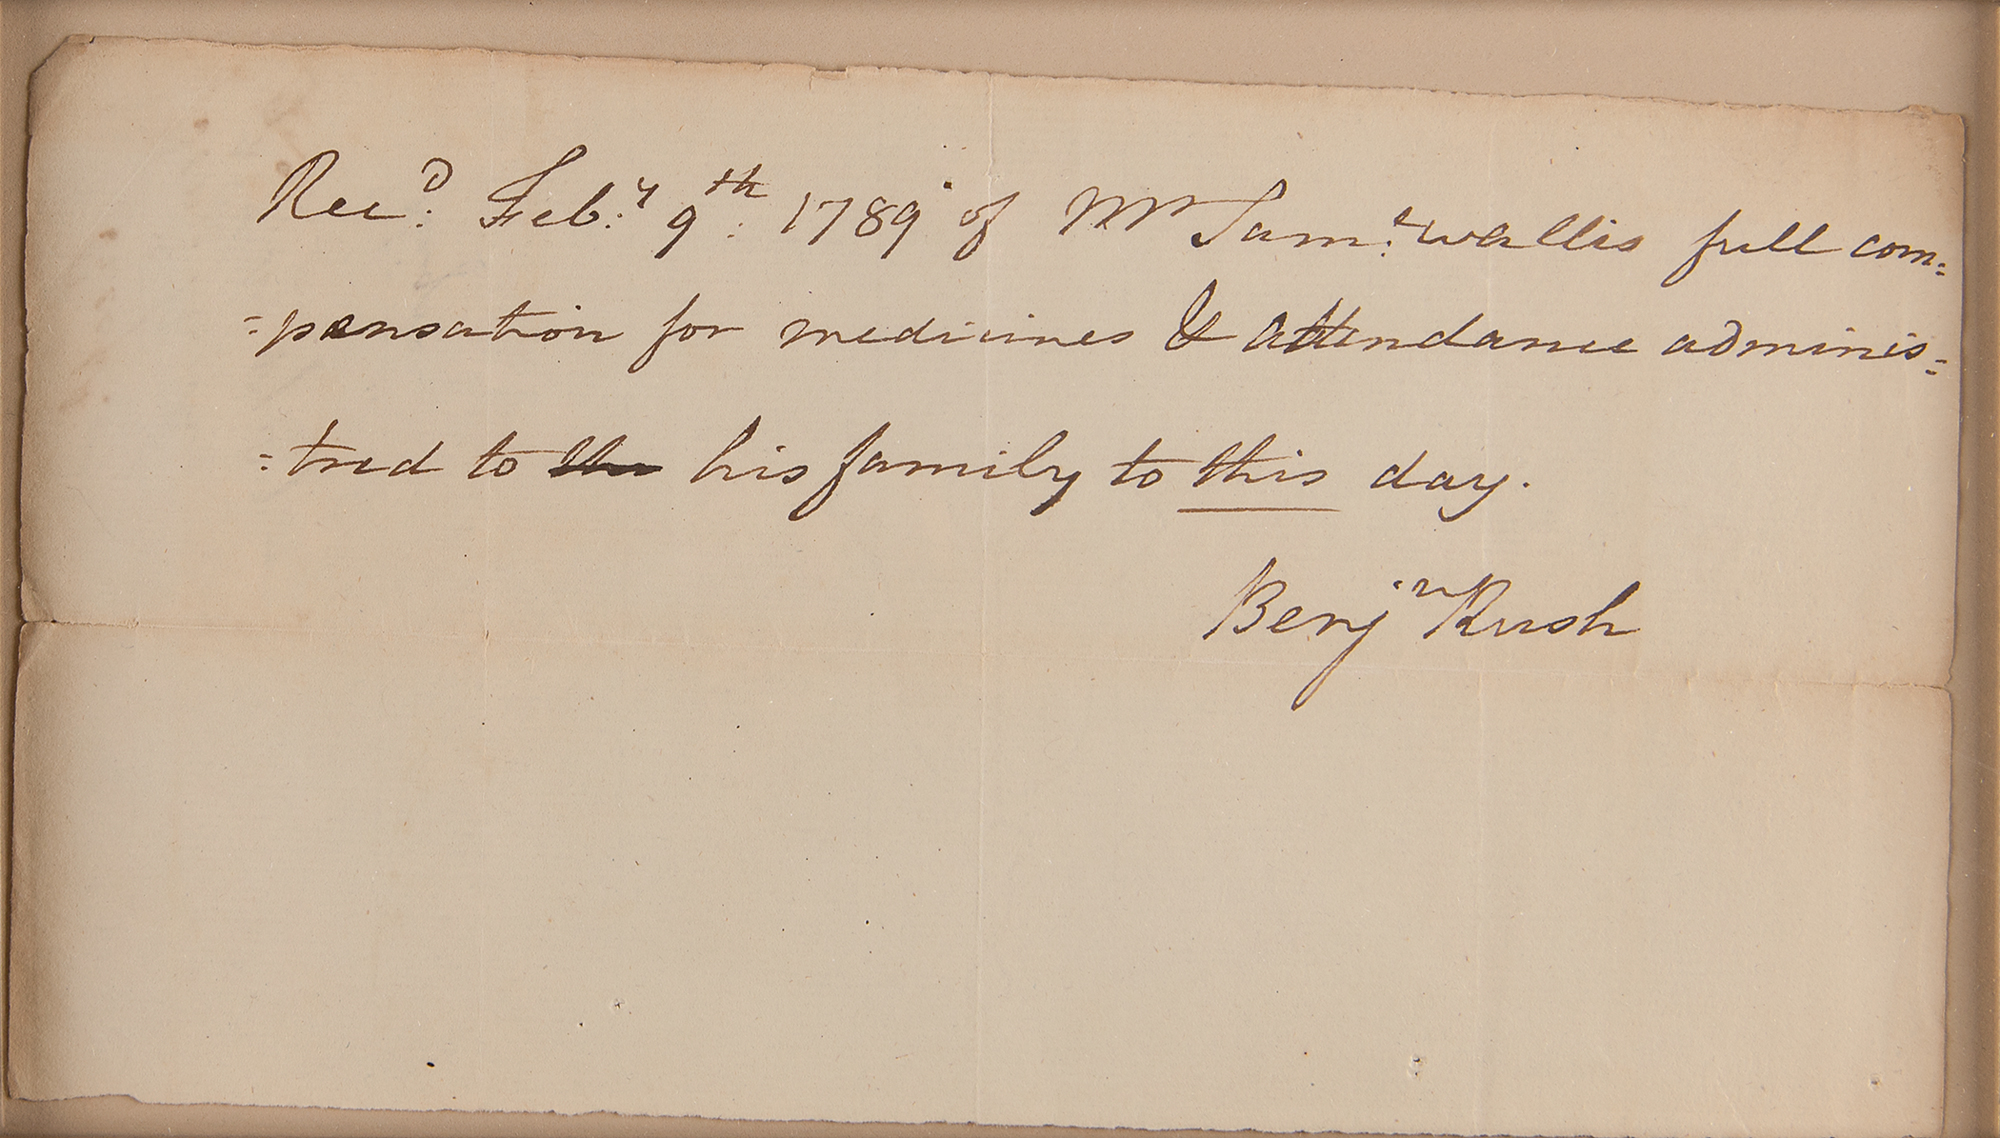 Rec.ᴰ Feb:ʸ 9.th 1789 of Mr Sam.ˡ wallis full com=
=pensation for medicines & attendance adminis=
=tred to the his family to this day.
Benjⁿ Rush